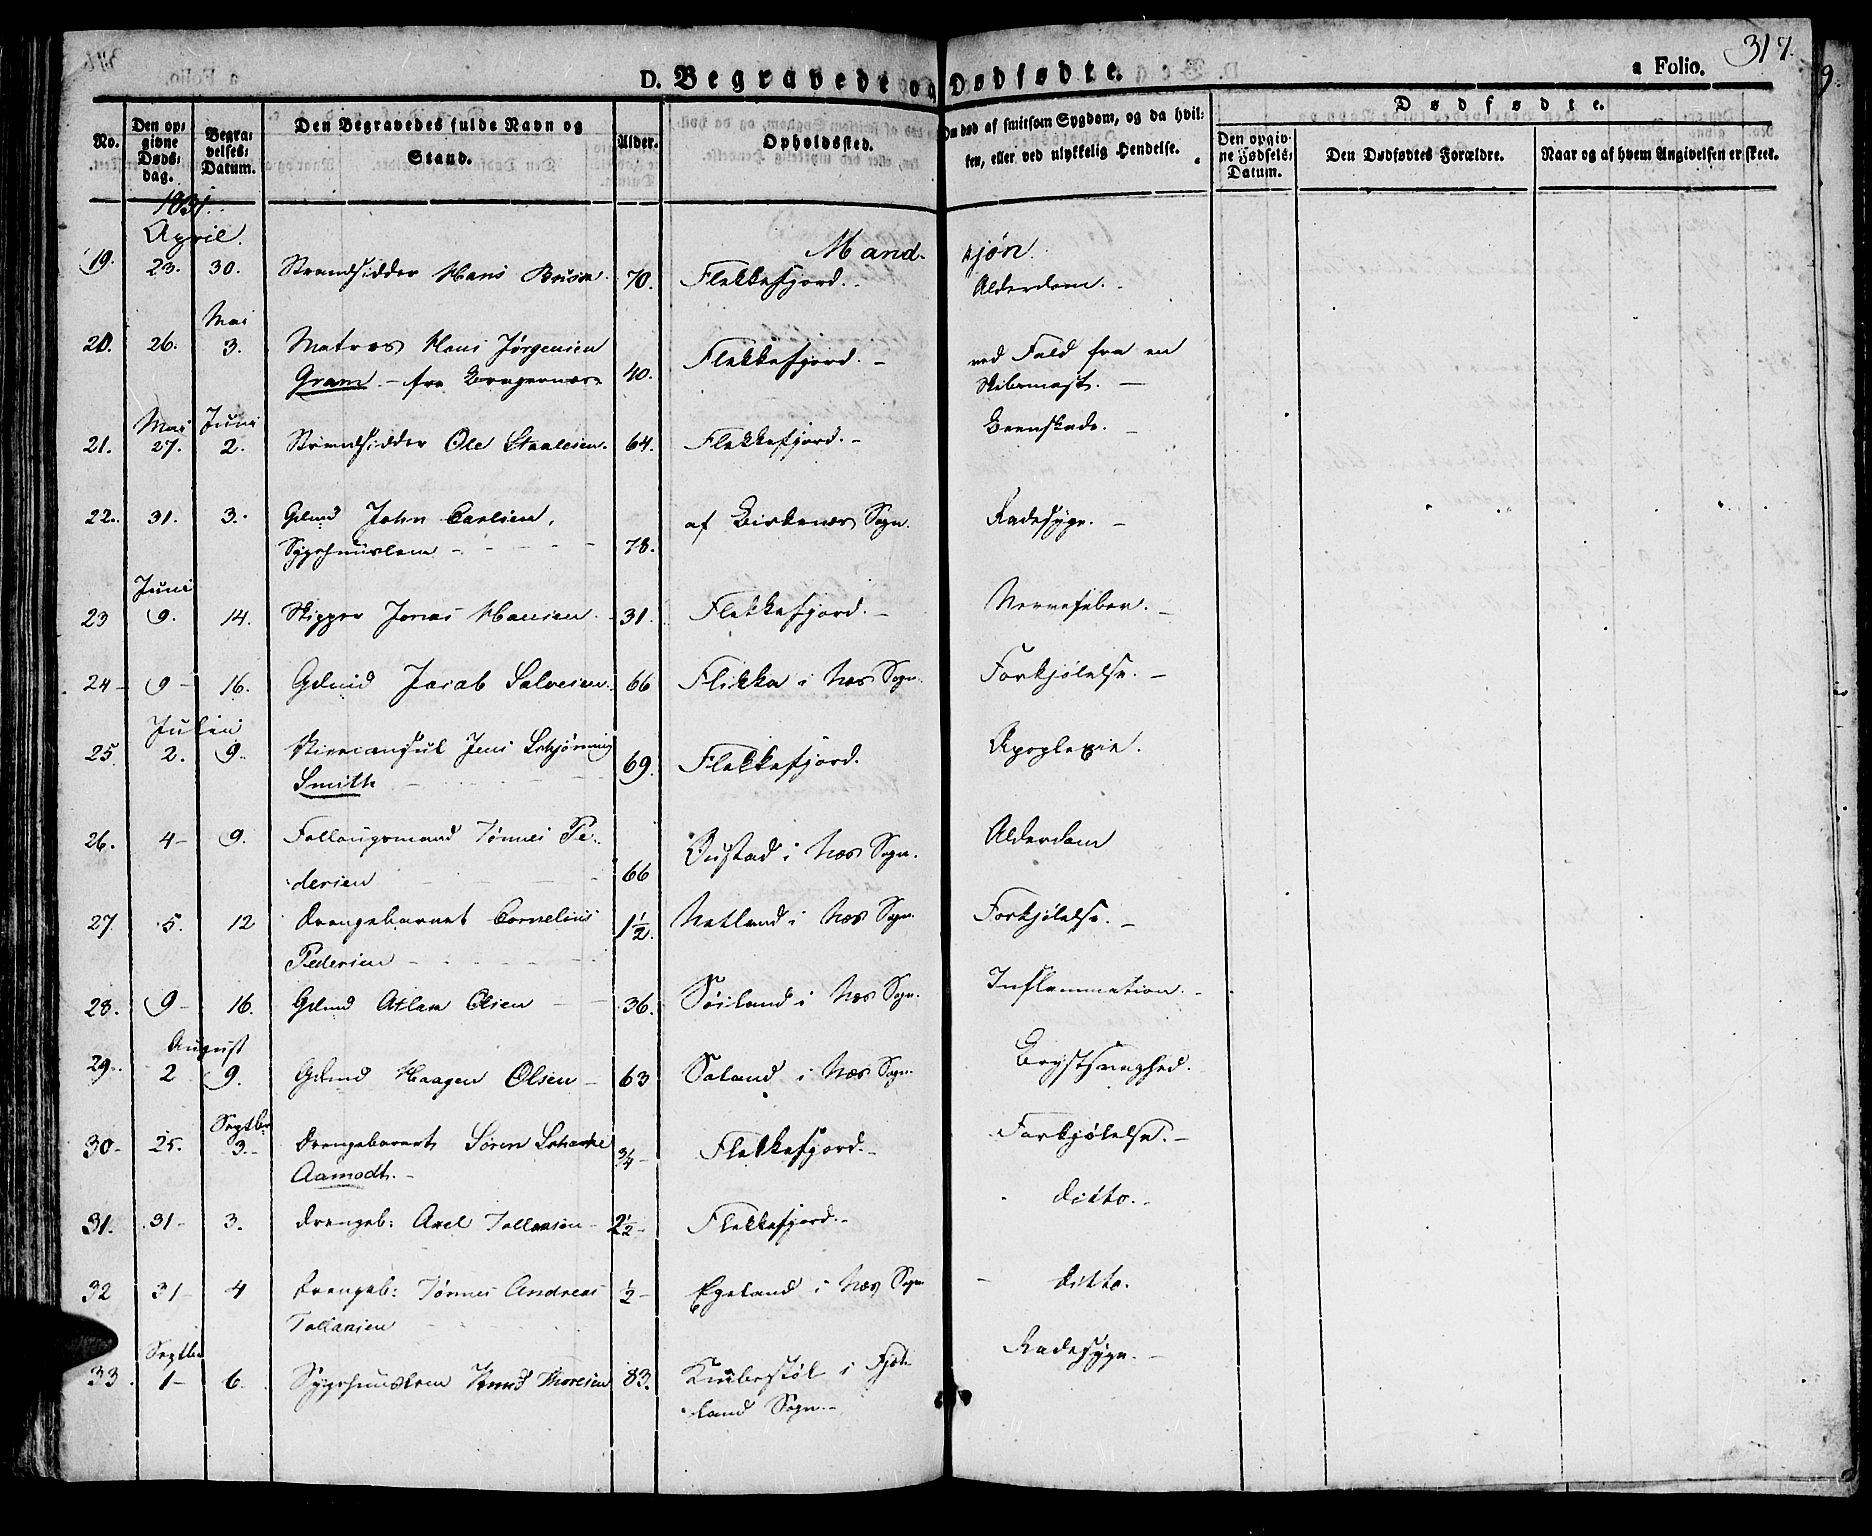 317.
a Folio.
D. Begravede og Dødfødte.
No.
Den opgivne Dødsdag.
Begravelses Datum.
Den Begravedes fulde Navn og Stand.
Alder.
Opholdssted.
Om død af smitsom Sygdom, og da hvilken, eller ved ulykkelig Hendelse.
Dødfødte.
Den opgivne Fødsels: Datum.
Den Dødfødtes Forældre.
Naar og af hvem Angivelsen er skeet.
1831.
April.
Mandkjøn.
19. 23. 30. Strandsidder Hans 70. Flekkefjord. Alderdom.
Mai
20. 26. 3. Matros Hans Jørgensen
Gram - fra Bragernæs 40. Flekkefjord. - ved Fald fra en
Skibsmast. -
Mai Juni
21. 27. 2. Strandsidder Ole Staalesen. 64. Flekkefjord. - Beenskade. -
22. 31. 3. Gdmd John Carlsen,
Sygehuuslem - 78. af Birkenæs Sogn. Radesyge. -
Juni
23 9. 14. Skipper Jonas Hansen. 31. Flekkefjord. - Nervefeber. -
24 - 9 - 16. Gdmd Jacob Salvesen. 66 Flikka i Næs Sogn. Forkjølelse. -
Julii
25. 2. 9. Viceconsul Jens Schjønning
Smith 69. Flekkefjord. Apoplexie.
26. 4 - 9. Follaugsmand Tønnes Pe-
dersen 66 i Næs Sogn. Alderdom
27. 5. 12 Drengebarnet Cornelius
Pedersen - 1½. Netland i Næs Sogn. Forkjølelse. -
28. 9 - 16. Gdmd Atlak Olsen 36. Søiland i Næs Sogn. Inflammation. -
August
29. 2 9. Gdmd Haagen Olsen - 63 Søland i Næs Sogn. Brystsvaghed.
Septbr
30 - 25. 3. - Drengebarnet Søren Schacke
Aamodt. - ¾ - Flekkefjord. - Forkjølelse. -
31. 31 - 3. Drengeb: Axel Tollaksen - 2½ - Flekkefjord. - ditto. -
32 31 - 4 Drengeb: Tønnes Andreas
Tollaksen ½ - Egeland i Næs Sogn ditto.
Septbr
33. 1 - 6. Sygehuuslem Knud Thoresen 83. i Fjot-
land Sogn. - Radesyge. -